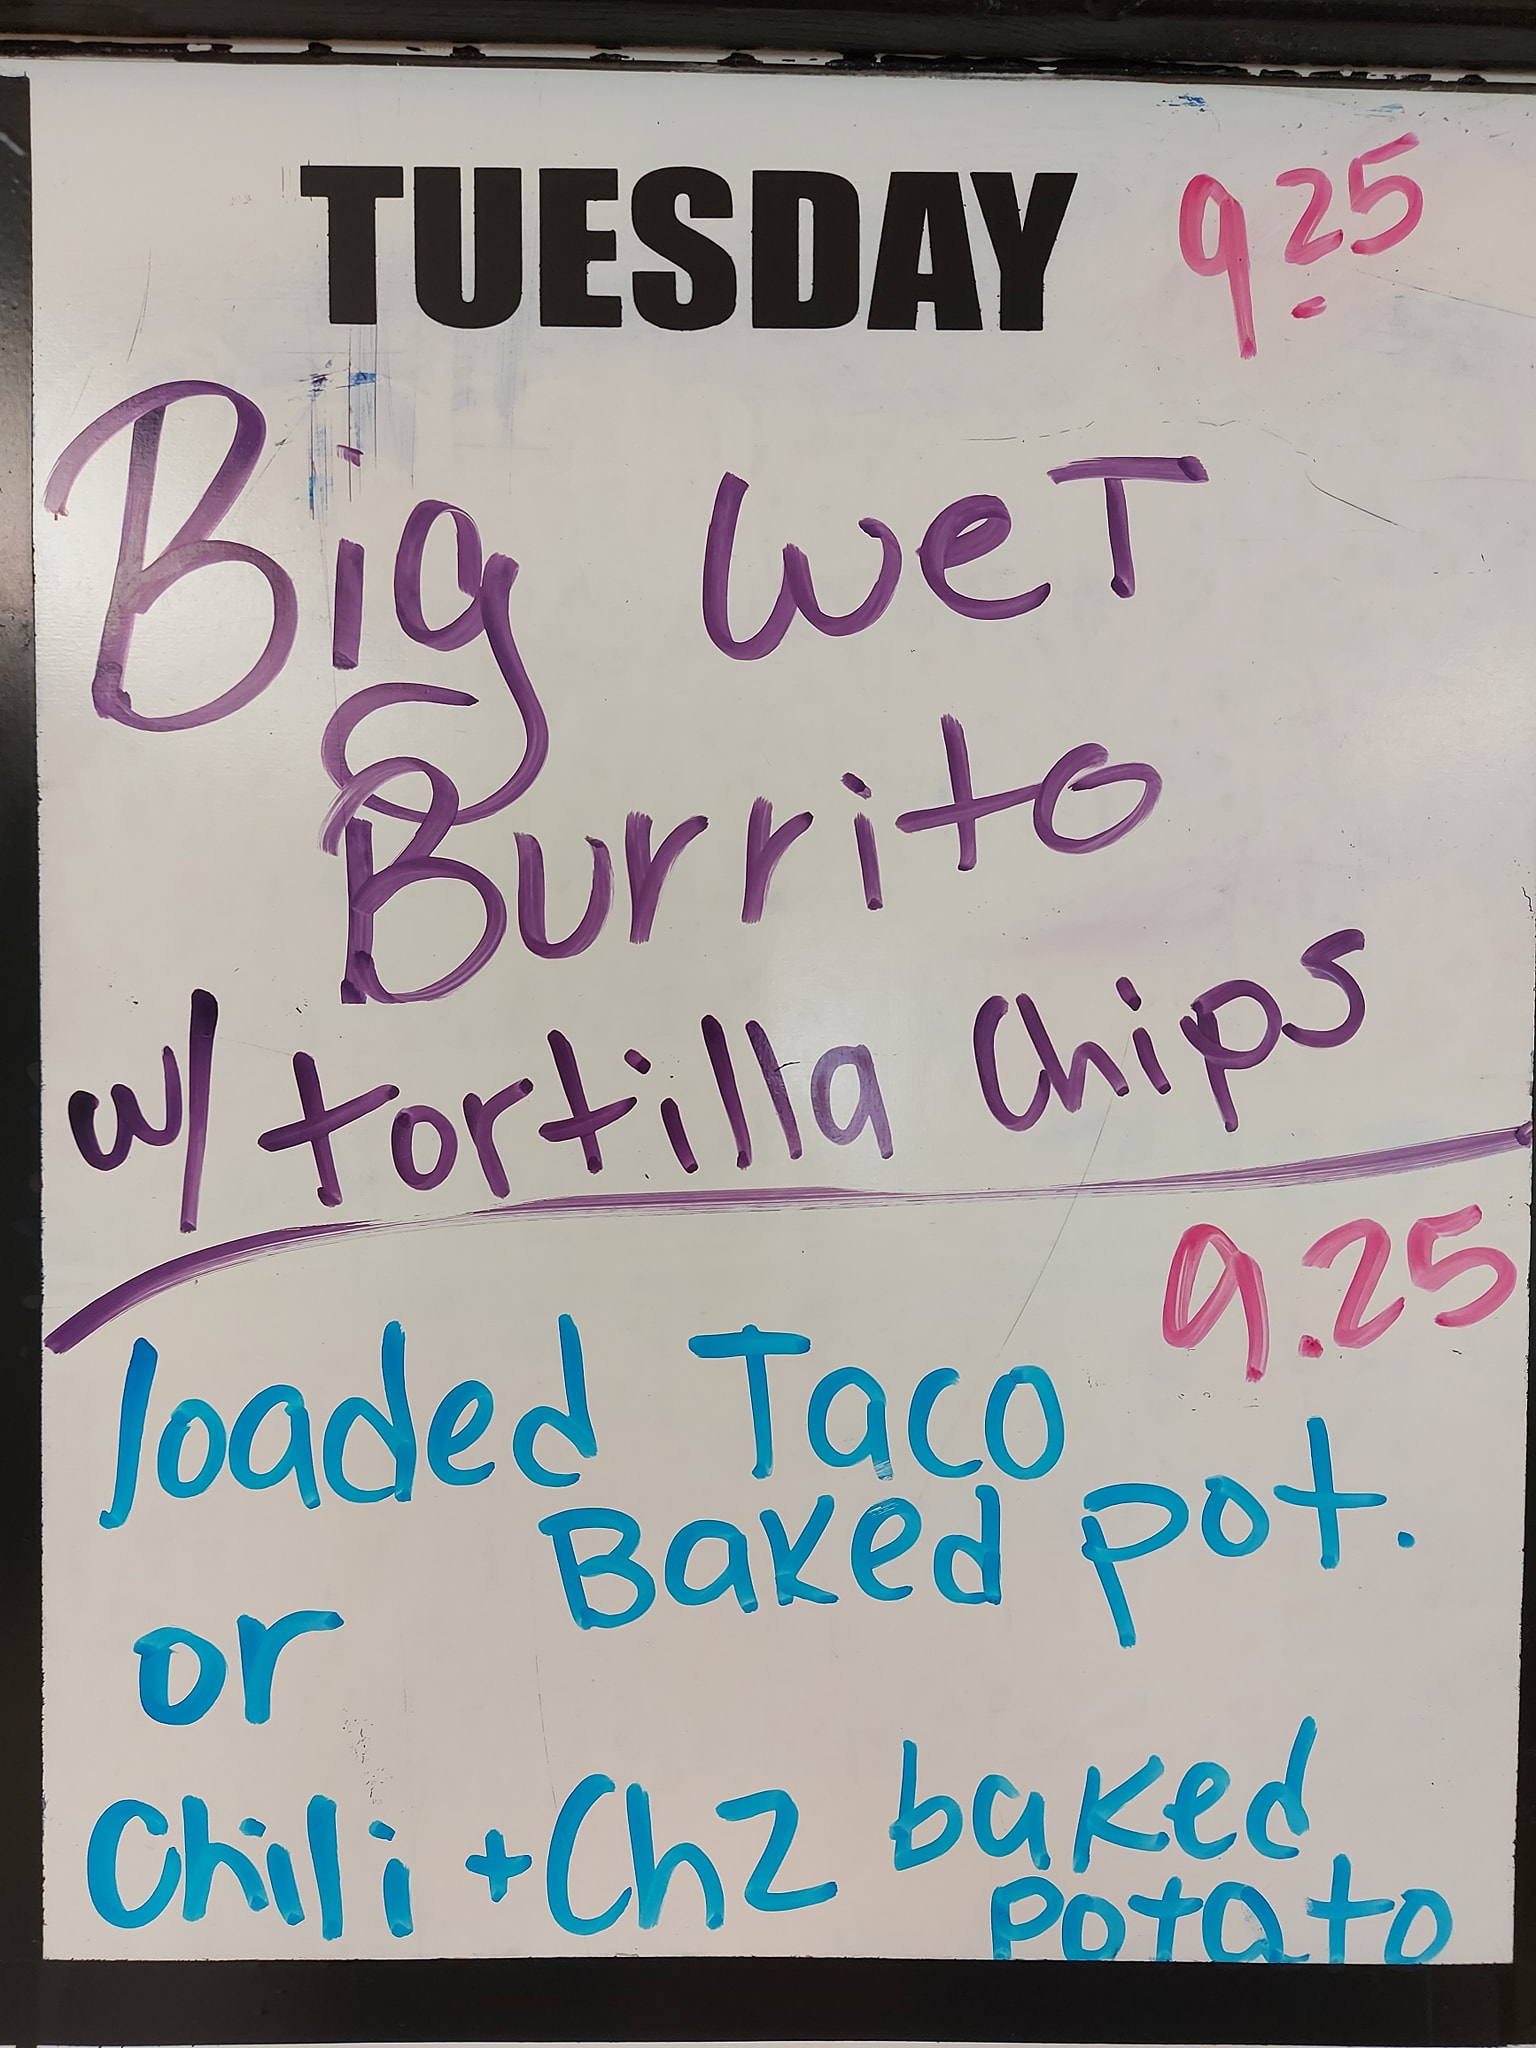 TUESDAY 9.25
Big WeT
Burrito
w/ tortilla Chips
9.25
loaded Taco
Baked pot.
or
Chili + Chz baked
potato